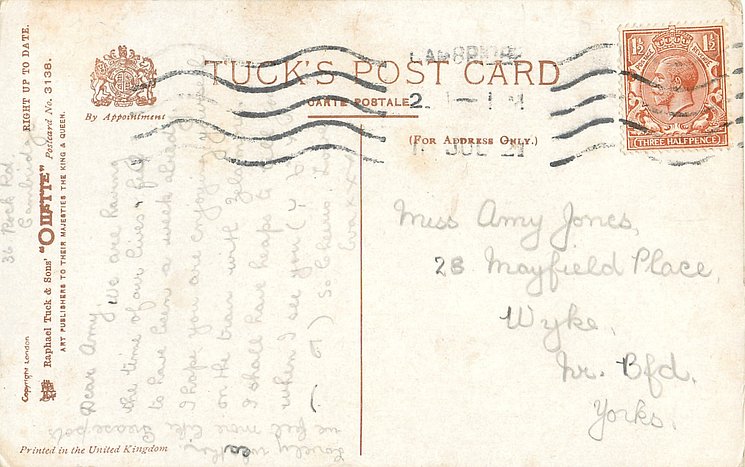 TUCK'S POST CARD
CARTE POSTALE
By Appointment
(FOR ADDRESS ONLY.)
1½ 1½
THREE HALFPENCE
RIGHT UP TO DATE.
Postcard No. 3138.
Raphael Tuck & Sons' "OILETTE"
ART PUBLISHERS TO THEIR MAJESTIES THE KING & QUEEN.
Copyright London
Printed in the United Kingdom
36 Rock Rd
Cambridge
Dear Amy, We are having
the time of our lives & feel
to have been a week already
I hope you are enjoying yourself
on the train with
I shall have heaps to
when I see you
So Cheerio Love
xxxx
Lovely weather
we feel more like
Miss Amy Jones,
28 Mayfield Place,
Wyke,
Nr. Bfd.
Yorks.